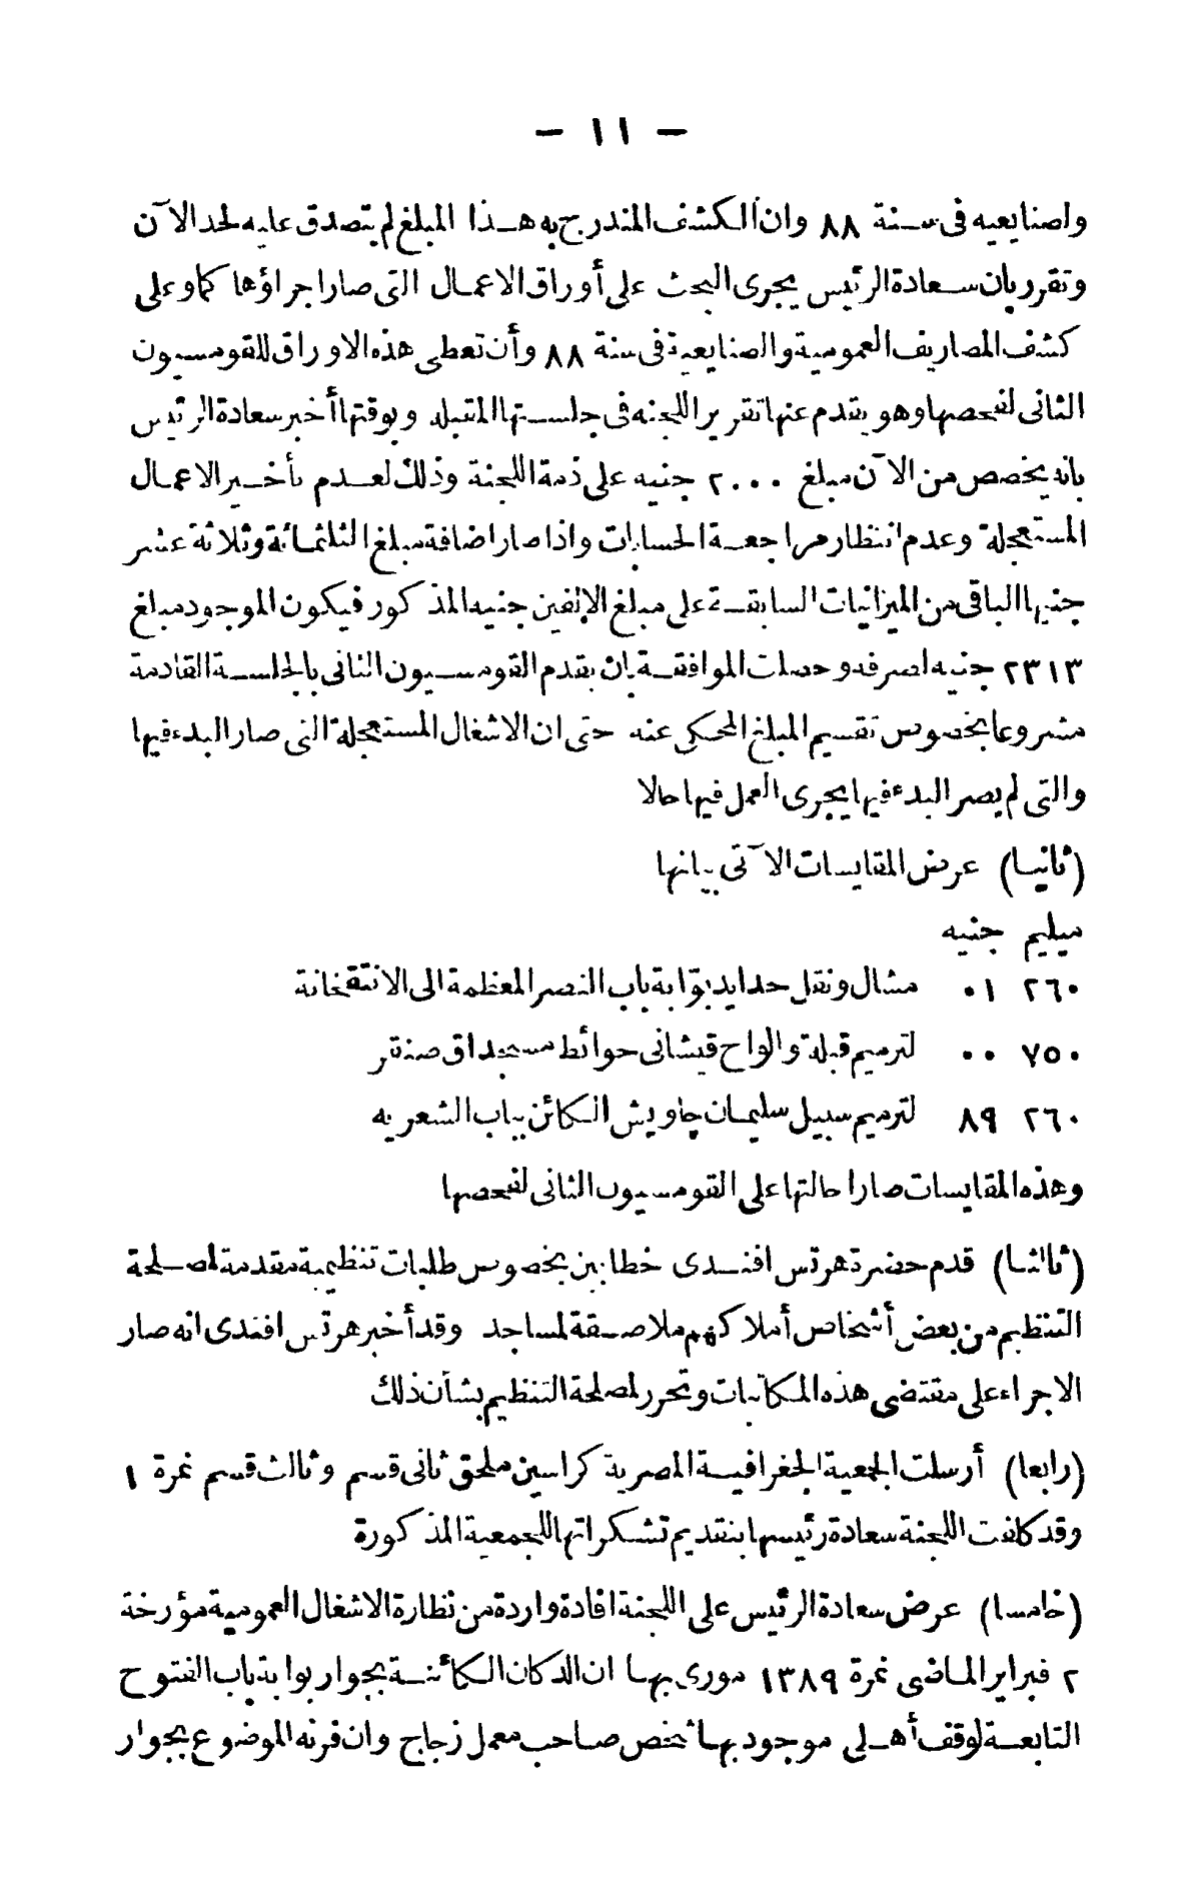 — ١١ —
واصنايعيه فى سنة ٨٨ وان الكشف المندرج به هذا المبلغ لم يتصدق عليه لحد الآن
وتقرر بان سعادة الرئيس يجرى البحث على أوراق الاعمال التى صار اجراؤها كما وعلى
كشف المصاريف العمومية والصنايعية فى سنة ٨٨ وأن تعطى هذه الاوراق للقومسيون
الثانى لفحصها وهو يقدم عنها تقرير اللجنه فى جلستها المقبله وبوقتها أخبر سعادة الرئيس
بانه يخصص من الآن مبلغ ٢٠٠٠ جنيه على ذمة اللجنة وذلك لعدم تأخير الاعمال
المستعجلة وعدم انتظار مراجعة الحسابات واذا صار اضافة مبلغ الثلثمائة وثلاثة عشر
جنيها الباقى من الميزانيات السابقة على مبلغ الالفين جنيه المذكور فيكون الموجود مبلغ
٢٣١٣ جنيه لصرفه وحصلت الموافقة بان يقدم القومسيون الثانى بالجلسة القادمة
مشروعا بخصوص تقسيم المبلغ المحكى عنه حتى ان الاشغال المستعجلة التى صار البدء فيها
والتى لم يصر البدء فيها يجرى العمل فيها حالا
(ثانيا) عرض المقايسات الآتى بيانها
ميليم جنيه
٢٦٠ ٠١ مشال ونقل حدايد بوّابة باب النصر المعظمة الى الانتقخانة
٧٥٠ ٠٠ لترميم قبلة والواح قيشانى حوائط مسجد اق صنقر
٢٦٠ ٨٩ لترميم سبيل سليمان چاويش الكائن بباب الشعريه
وهذه المقايسات صار احالتها على القومسيون الثانى لفحصها
(ثالثا) قدم حضرة هرتس افندى خطابين بخصوص طلبات تنظيمية مقدمة لمصلحة
التنظيم من بعض أشخاص أملاكهم ملاصقة لمساجد وقد أخبر هرتس افندى انه صار
الاجراء على مقتضى هذه المكاتبات وتحرر لمصلحة التنظيم بشأن ذلك
(رابعا) أرسلت الجمعية الجغرافية المصرية كراسين ملحق ثانى قسم وثالث قسم نمرة ١
وقد كافت اللجنة سعادة رئيسها بتقديم تشكراتها للجمعية المذكورة
(خامسا) عرض سعادة الرئيس على اللجنة افادة واردة من نظارة الاشغال العمومية مؤرخة
٢ فبراير الماضى نمرة ١٣٨٩ مورى بها ان الدكان الكائنة بجوار بوابة باب الفتوح
التابعة لوقف أهلى موجود بها شخص صاحب معمل زجاج وان فرنه الموضوع بجوار